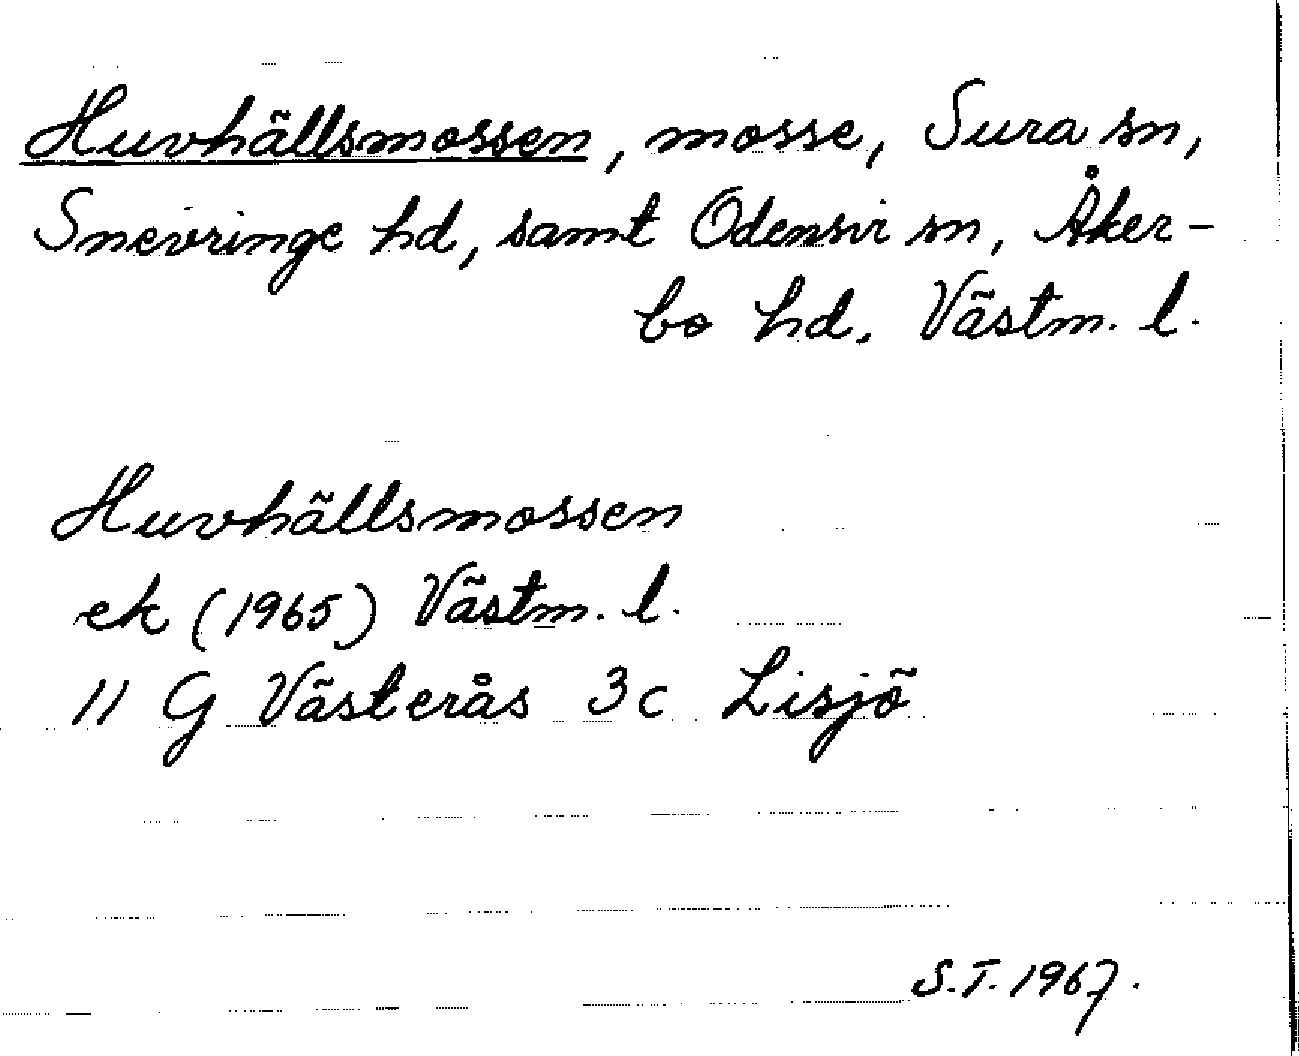 Huvhällsmossen, mosse, Sura sn,
Snevringe hd, samt Odensvi sn, Åker-
bo hd. Västm. l.
Huvhällsmossen
ek (1965) Västm. l.
11 G Västerås 3c Lisjö
S.T. 1967.